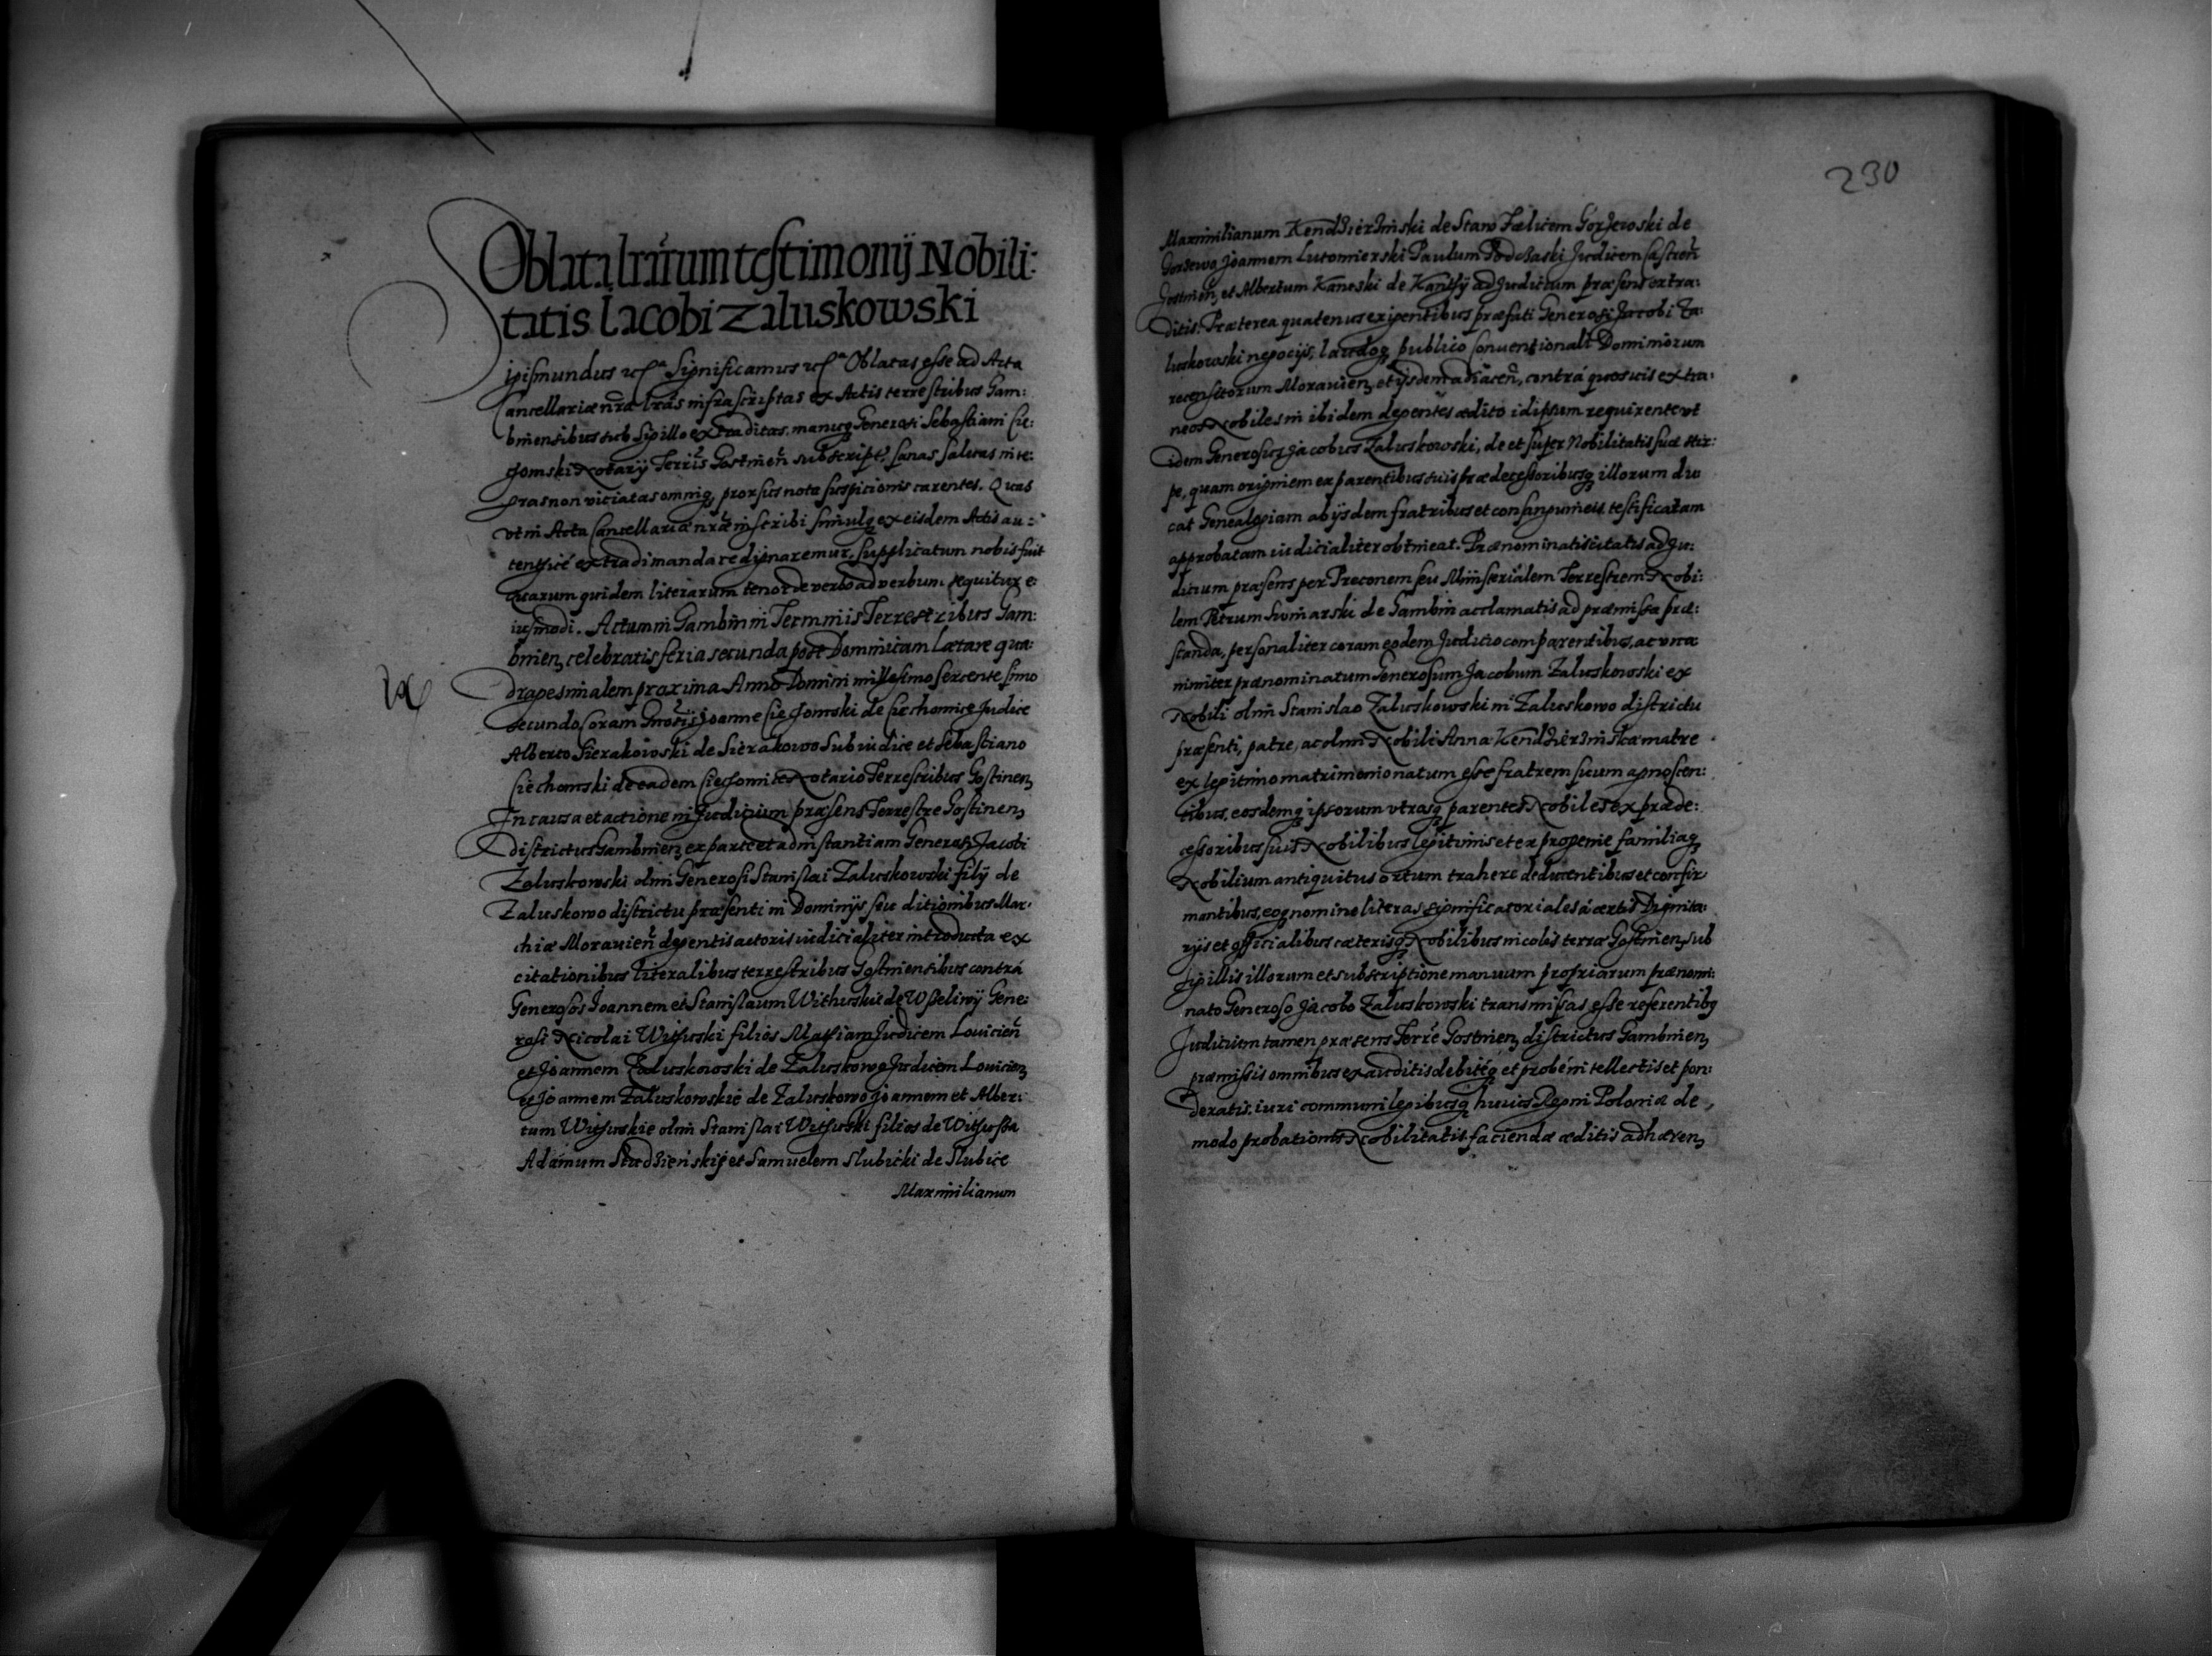 Oblata lrarum testimonij Nobili:
tatis Iacobi Zaluskowski
igismundus etca Significamus etca Oblatas esse ad Acta
Cancellariæ nræ lras infrascriptas ex Actis terrestribus Gam:
binensibus sub Sigillo extraditas, manuq Generosi Sebastiani Cie:
chomski Notarij Terris Gostinen subscript. sanas salvas inte:
gras non viciatas omniq prorsus nota suspicionis carentes. Quas
ut in Acta Cancellariæ nræ inscribi simulq ex eisdem Actis au:
tenthicè extradi mandare dignaremur, supplicatum nobis fuit
quarum quidem literarum tenor de verbo ad verbum sequitur e:
iusmodi. Actum in Gambin in Terminis Terrestribus Gam:
binen, celebratis feria secunda post Dominicam Lætare qua:
dragesimalem proxima Anno Domini millesimo sexcentesimo
secundo, coram Joanne Ciechomski de Ciechomice Judice
Alberto Sierakowski de Sierakowo Subiudice et Sebastiano
Ciechomski de eadem Ciechomice Notario Terrestribus Gostinen,
In causa et actione in Judicium præsens Terrestre Gostinen,
Districtus Gambinen, ex parte et ad instantiam Generosi Jacobi
Zaluskowski olim Generosi Stanislai Zaluskowski filij de
Zaluskowo districtu præsenti in Dominijs seu ditionibus Mar:
chiæ Moravien degentis actoris iudicialiter introducta ex
citationibus literalibus terrestribus Gostinensibus contrá
Generosos Joannem et Stanislaum Withuskie de Wseliwÿ Gene:
rosi Nicolai Withuski filios Mathiam Judicem Lovicien
et Joannem Zaluskowski de Zaluskowo Judicem Lovicien,
et Joannem Zaluskowskie de Zaluskowo Joannem et Alber:
tum Withuskie olim Stanislai Withuski filios de
Adámum Studzieńskij et Samuelem Slubicki de Slubice
Maximilianum
230
Maximilianum Kendzierzinski de Staw Fælicem Gorzewski de
Gorzewo Joannem Lutomierski Paulum Judicem Castren
Gostinen, et Albertum Kaneski de ad Judicium præsens extra:
ditis. Præterea quatenus exigentibus præfati Generosi Jacobi Za:
luskowski negocijs, laudoq publico conventionali Dominorum
recensitorum Moravien, et ijsdem adiacen, contrá quosvis extra:
neos Nobiles in ibidem degentes ædito idipsum requirente ut
idem Generosus Jacobus Zaluskowski, de et super Nobilitatis suæ stir:
pe, quam originem ex parentibus suis prædecessoribusq illorum du:
cat Genealogiam ab ijsdem fratribus et consanguineis testificatam
approbatam iudicialiter obtineat. Prænominatis citatis ad Ju:
dicium præsens per Preconem seu Ministerialem Terrestrem Nobi:
lem Petrum Suminarski de Gambin acclamatis ad præmissa præ:
standa, personaliter coram eodem Judicio comparentibus, ac una:
nimiter prænominatum Generosum Jacobum Zaluskowski ex
Nobili olim Stanislao Zaluskowski in Zaluskowo districtu
præsenti, patre, ac olim Nobili Anna Kendzierzinska matre
ex legitimo matrimonio natum esse fratrem suum agnoscen:
tibus, eosdemq ipsorum utrosq parentes Nobiles ex præde:
cessoribus suis Nobilibus legitimis et ex progenie familiaq
Nobilium antiquitus ortum trahere deducentibus et confir:
mantibus, eoq nomine literas significatoriales á certis Dignita:
rijs et officialibus cæterisq Nobilibus incolis terræ Gostinen, sub
sigillis illorum et subscriptione manuum propriarum prænomi:
nato Generoso Jacobo Zaluskowski transmissas esse referentibq
Judicium tamen præsens Terre Gostinen, districtus Gambinen,
præmissis omnibus exauditis debitéq et probé intellectis et pon:
deratis, iuri communi legibusq huius Regni Poloniæ de
modo probationis Nobilitatis faciendæ æditis adhæren,